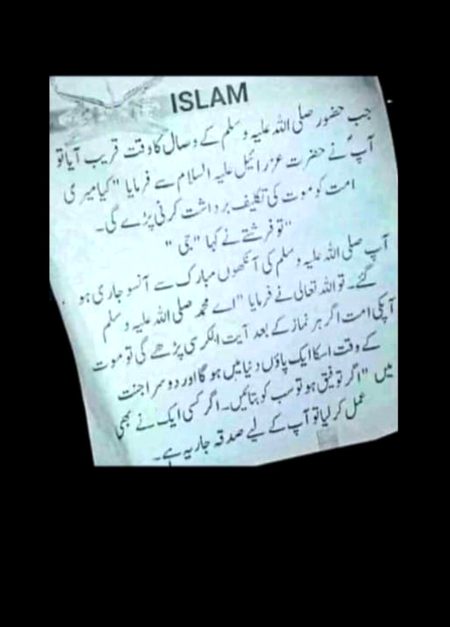 ISLAM
جب حضور صلی اللہ علیہ وسلم کے وصال کا وقت قریب آیا تو
آپؐ نے حضرت عزرائیل علیہ السلام سے فرمایا "کیا میری
امت کو موت کی تکلیف برداشت کرنی پڑے گی۔
"تو فرشتے نے کہا "جی"
آپ صلی اللہ علیہ وسلم کی آنکھوں مبارک سے آنسو جاری ہو
گئے۔ تو اللہ تعالی نے فرمایا "اے محمد صلی اللہ علیہ وسلم
آپکی امت اگر ہر نماز کے بعد آیت الکرسی پڑھے گی تو موت
کے وقت اسکا ایک پاؤں دنیا میں ہو گا اور دوسرا جنت
میں "اگر توفیق ہو تو سب کو بتائیں۔ اگر کسی ایک نے بھی
عمل کر لیا تو آپ کے لیے صدقہ جاریہ ہے۔